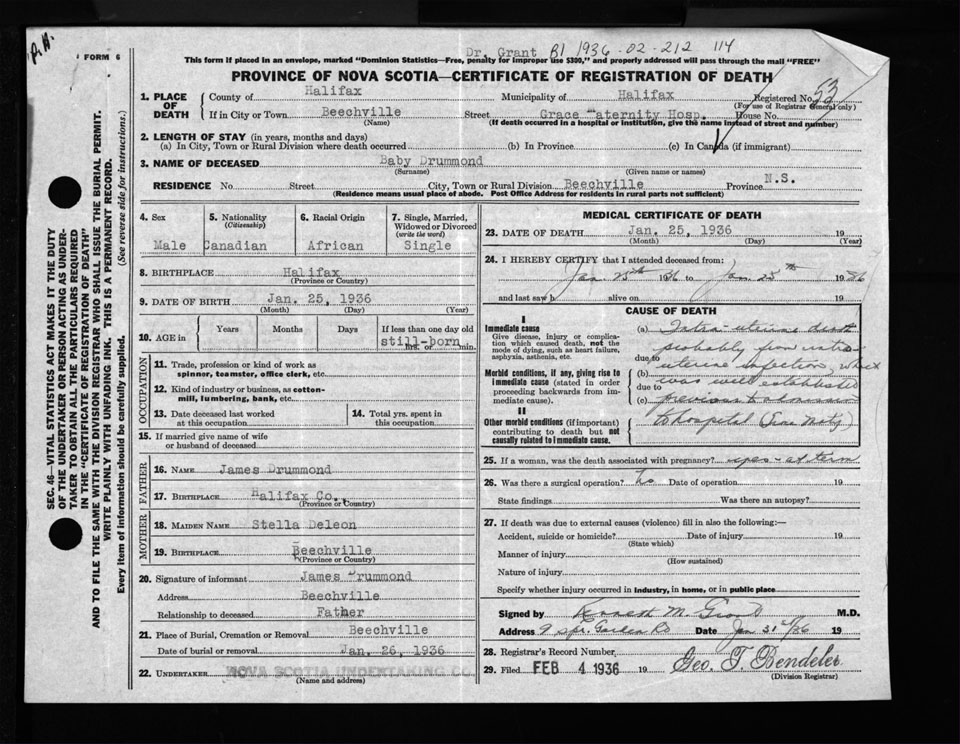 P. H.
FORM 6
Dr. Grant B1 1936-02-212 114
This form if placed in an envelope, marked "Dominion Statistics—Free, penalty for improper use $300," and properly addressed will pass through the mail "FREE"
PROVINCE OF NOVA SCOTIA—CERTIFICATE OF REGISTRATION OF DEATH
1. PLACE OF DEATH
County of Halifax
Municipality of Halifax
Registered No. 53
(For use of Registrar General only)
If in City or Town Beechville
(Name)
Street Grace Maternity Hosp. House No.
(If death occurred in a hospital or institution, give the name instead of street and number)
2. LENGTH OF STAY (in years, months and days)
(a) In City, Town or Rural Division where death occurred (b) In Province (c) In Canada (if immigrant)
3. NAME OF DECEASED Baby Drummond
(Surname) (Given name or names)
RESIDENCE No. Street City, Town or Rural Division Beechville Province N.S.
(Residence means usual place of abode. Post Office Address for residents in rural parts not sufficient)
4. Sex
Male
5. Nationality
(Citizenship)
Canadian
6. Racial Origin
African
7. Single, Married, Widowed or Divorced
(write the word)
Single
8. BIRTHPLACE Halifax
(Province or Country)
9. DATE OF BIRTH Jan. 25, 1936
(Month) (Day) (Year)
10. AGE in
Years Months Days If less than one day old
still-born
hrs. or min.
OCCUPATION
11. Trade, profession or kind of work as spinner, teamster, office clerk, etc.
12. Kind of industry or business, as cotton-mill, lumbering, bank, etc.
13. Date deceased last worked at this occupation
14. Total yrs. spent in this occupation
15. If married give name of wife or husband of deceased
FATHER
16. NAME James Drummond
17. BIRTHPLACE Halifax Co.,
(Province or Country)
MOTHER
18. MAIDEN NAME Stella Deleon
19. BIRTHPLACE Beechville
(Province or Country)
20. Signature of informant James Drummond
Address Beechville
Relationship to deceased Father
21. Place of Burial, Cremation or Removal Beechville
Date of burial or removal Jan. 26, 1936
22. UNDERTAKER NOVA SCOTIA UNDERTAKING CO.
(Name and address)
MEDICAL CERTIFICATE OF DEATH
23. DATE OF DEATH Jan. 25, 1936 19
(Month) (Day) (Year)
24. I HEREBY CERTIFY that I attended deceased from:
Jan 25th 1936 to Jan 25th 1936
and last saw h alive on 19
CAUSE OF DEATH
I
Immediate cause
Give disease, injury or complication which caused death, not the mode of dying, such as heart failure, asphyxia, asthenia, etc.
Morbid conditions, if any, giving rise to immediate cause (stated in order proceeding backwards from immediate cause).
II
Other morbid conditions (if important) contributing to death but not causally related to immediate cause.
(a) Intra-uterine death
due to probably from intra
(b) uterine infection, which
due to was well established
(c) previous to admission
to hospital
25. If a woman, was the death associated with pregnancy? yes - at term
26. Was there a surgical operation? no Date of operation 19
State findings Was there an autopsy?
27. If death was due to external causes (violence) fill in also the following:—
Accident, suicide or homicide? Date of injury 19
(State which)
Manner of injury
(How sustained)
Nature of injury
Specify whether injury occurred in industry, in home, or in public place
Signed by Kenneth M. Grant M.D.
Address 9 Spr. Garden Rd Date Jan 31st/36 19
28. Registrar's Record Number
29. Filed FEB 4 1936 19 Geo. T. Bendeler
(Division Registrar)
SEC. 46—VITAL STATISTICS ACT MAKES IT THE DUTY
OF THE UNDERTAKER OR PERSON ACTING AS UNDER-
TAKER TO OBTAIN ALL THE PARTICULARS REQUIRED
IN THE "CERTIFICATE OF REGISTRATION OF DEATH"
AND TO FILE THE SAME WITH THE DIVISION REGISTRAR WHO SHALL ISSUE THE BURIAL PERMIT.
WRITE PLAINLY WITH UNFADING INK. THIS IS A PERMANENT RECORD.
Every item of information should be carefully supplied. (See reverse side for instructions.)